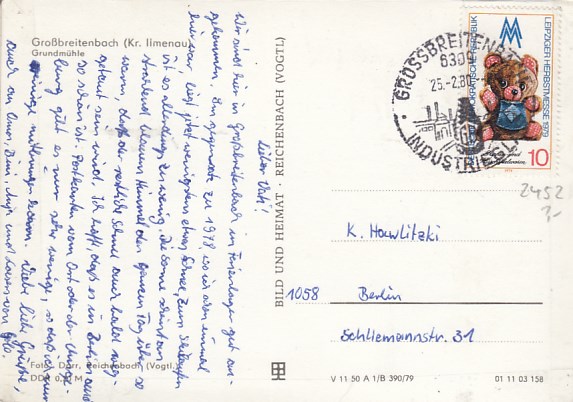 Großbreitenbach (Kr. Ilmenau)
Grundmühle
Lieber Vati!
Wir sind hier in Großbreitenbach im Ferienlager gut an-
gekommen. Im Gegensatz zu 1978 wo ich schon einmal
hier war liegt jetzt wenigstens etwas Schnee, zum Skilaufen
ist es allerdings zu wenig. Die Sonne scheint am
strahlend blauen Himmel den ganzen Tag über, so
warm, daß der restliche Schnee auch bald weg-
getaut sein wird. Ich hoffe daß es in Berlin auch
so schön ist. Postkarten vom Ort oder der Umge-
bung gibt es nur sehr wenige, so daß ich nur
einige mitbringen kann. Viele liebe Grüße,
auch an
Foto: Darr, Reichenbach (Vogtl.)
DDR 0, M
BILD UND HEIMAT · REICHENBACH (VOGTL)
GROSSBREITENBACH
630
25.-2.80
INDUSTRIE
LEIPZIGER HERBSTMESSE 1979
DEMOKRATISCHE REPUBLIK
10
2452
K. Hawlitzki
1058 Berlin
Schliemannstr. 31
V 11 50 A 1/B 390/79
01 11 03 158